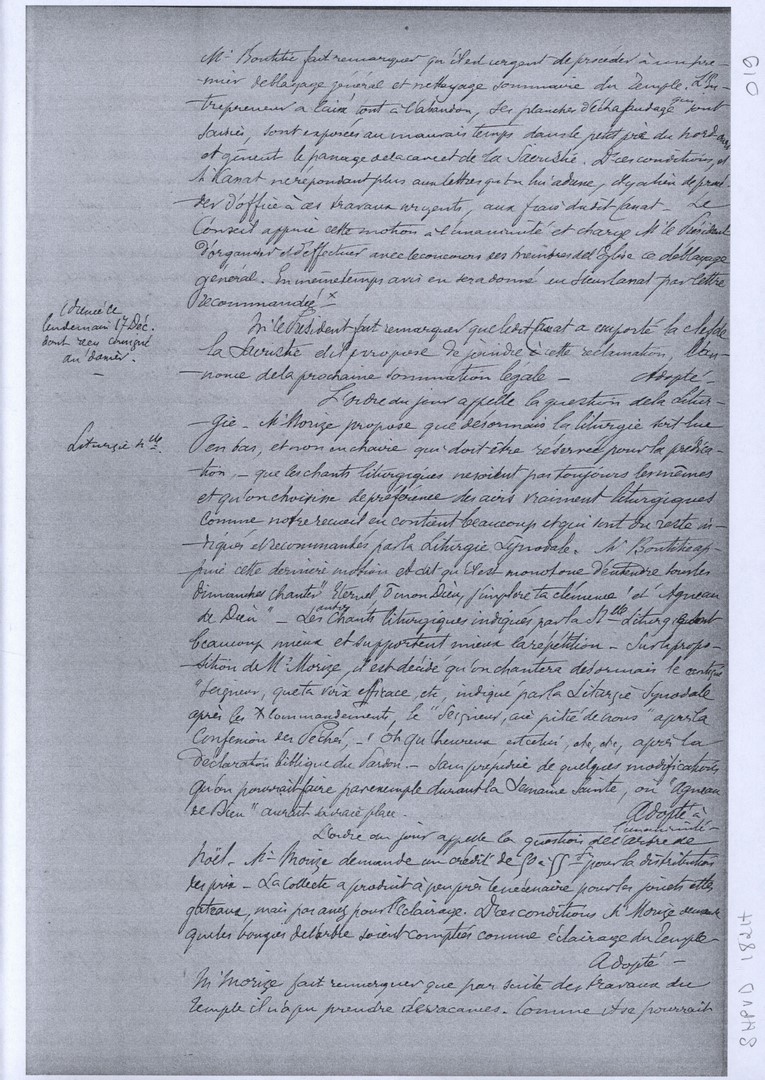 Mr Bonthé fait remarquer qu'il est urgent de procéder à un pre-
mier déblayage général et nettoyage sommaire du Temple. L'En-
trepreneur a laissé tout à l'abandon, les planches d'échafaudage qui sont
sont exposées au mauvais temps dans le petit pré du nord
et gênent le passage de la cave et de la Sacristie. Dans ces conditions, et
Mr Canat ne répondant plus aux lettres qu'on lui adresse, il y a lieu de procé-
der d'office à ces travaux urgents, aux frais du dit Canat. - Le
Conseil appuie cette motion à l'unanimité et charge Mr le Président
d'organiser et d'effectuer avec le concours des membres de l'Eglise ce déblayage
général. En même temps avis en sera donné au Sieur Canat par lettre
recommandée! x
lendemain 17 Déc.
dont reçu
au dossier.
Mr le Président fait remarquer que le dit Canat a emporté la clef de
la Sacristie et il propose de joindre à cette réclamation, l'an-
nonce de la prochaine sommation légale - Adopté -
L'ordre du jour appelle la question de la Litur-
Liturgie nlle.
gie. - Mr Morize propose que désormais la liturgie soit lue
en bas, et non en chaire qui doit être réservée pour la prédica-
tion, - que les chants liturgiques ne soient pas toujours les mêmes
et qu'on choisisse de préférence des airs vraiment liturgiques
comme notre recueil en contient beaucoup et qui sont du reste in-
diqués et recommandés par la Liturgie Synodale. Mr Bonthé ap-
puie cette dernière motion et dit qu'il est monotone d'entendre tous les
dimanches chanter "Eternel ô mon Dieu, j'implore ta clémence" et "Agneau
de Dieu" - Les autres chants liturgiques indiqués par la Nlle Liturgie
beaucoup mieux et supportent mieux la répétition - Sur la propo-
sition de Mr Morize, il est décidé qu'on chantera désormais le cantique
"Seigneur, que ta voix efficace, etc, indiqué par la Liturgie Synodale
après les X commandements, le "Seigneur, aie pitié de nous" après la
Confession des Péchés, - "Oh qu'heureux est celui, etc, etc, après la
Déclaration biblique du Pardon. - Sans préjudice de quelques modifications
qu'on pourrait faire par exemple durant la Semaine Sainte, où "Agneau
de Dieu" aurait sa vraie place. Adopté à
l'unanimité -
L'ordre du jour appelle la question de l'arbre de
Noël. - Mr Morize demande un crédit de 50 à 55 f pour la distribution
des prix - La collecte a produit à peu près le nécessaire pour les jouets et les
gâteaux, mais pas assez pour l'éclairage. Dans ces conditions Mr Morize demande
que les bougies de l'arbre soient comptées comme éclairage du Temple
Adopté -
Mr Morize fait remarquer que par suite des travaux du
Temple il n'a pu prendre de vacances. Comme il se pourrait
010
SHPVD 1824